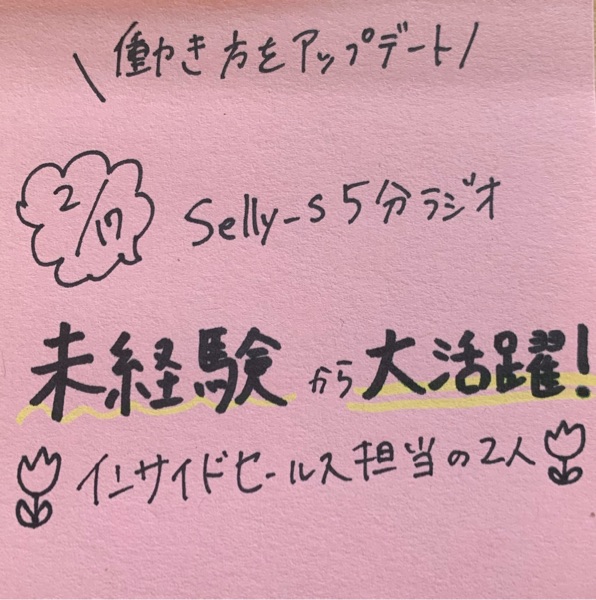 \働き方をアップデート/
2/17
Selly-s 5分ラジオ
未経験から大活躍!
インサイドセールス担当の2人